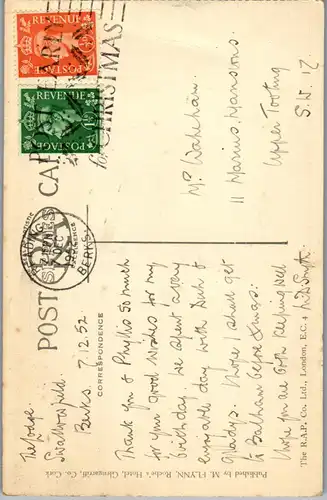 POST CARD
POSTAL REVENUE
POSTAGE
POSTAGE REVENUE
POST EARLY
for CHRISTMAS
READING
BERKS.
CORRESPONDENCE
The Lodge
Swallowfield
Berks. 7.12.52
Thank you & Phyllis so much
for your good wishes for my
birthday. We spent a very
enjoyable day with Dick &
Gladys. Hope I shall get
to Balham before Xmas.
Hope you are both keeping well
Mr. Wakeham.
11 Marius Mansions
Upper Tooting
S.W. 17
The R.A.P. Co. Ltd., London, E.C. 4
Published by M. FLYNN, Roche's Hotel, Glengarriff, Co. Cork